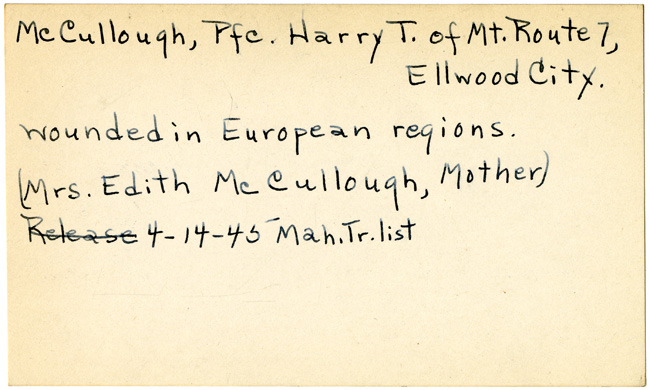 McCullough, Pfc. Harry T. of Mt. Route 7,
Ellwood City.
wounded in European regions.
(Mrs. Edith McCullough, Mother)
Release 4-14-45 Mah. Tr. list